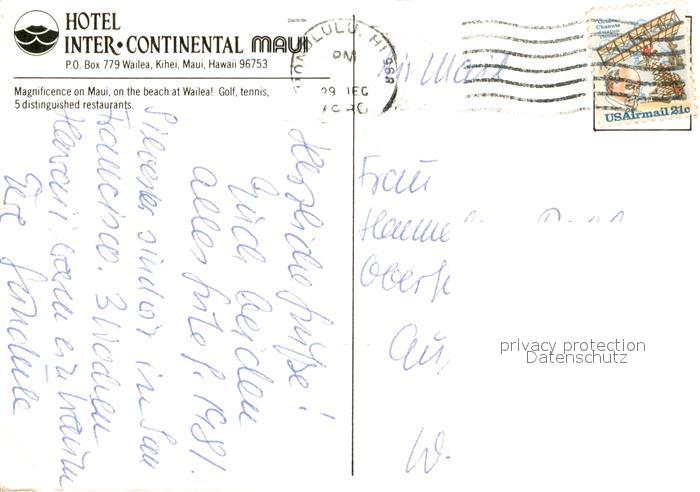 HOTEL
INTER•CONTINENTAL MAUI
P.O. Box 779 Wailea, Kihei, Maui, Hawaii 96753
Magnificence on Maui, on the beach at Wailea! Golf, tennis,
5 distinguished restaurants.
HONOLULU, HI 968
PM
29 DEC
Air Mail
Octave Chanute
USAirmail 21c
Herzliche Grüße!
Euch beiden
alles Gute f. 1981.
Silvester sind wir in San
Francisco. 3 Wochen
Hawaii waren ein Traum
Eure
Frau
Hanne
Ober
Au
W.
privacy protection
Datenschutz